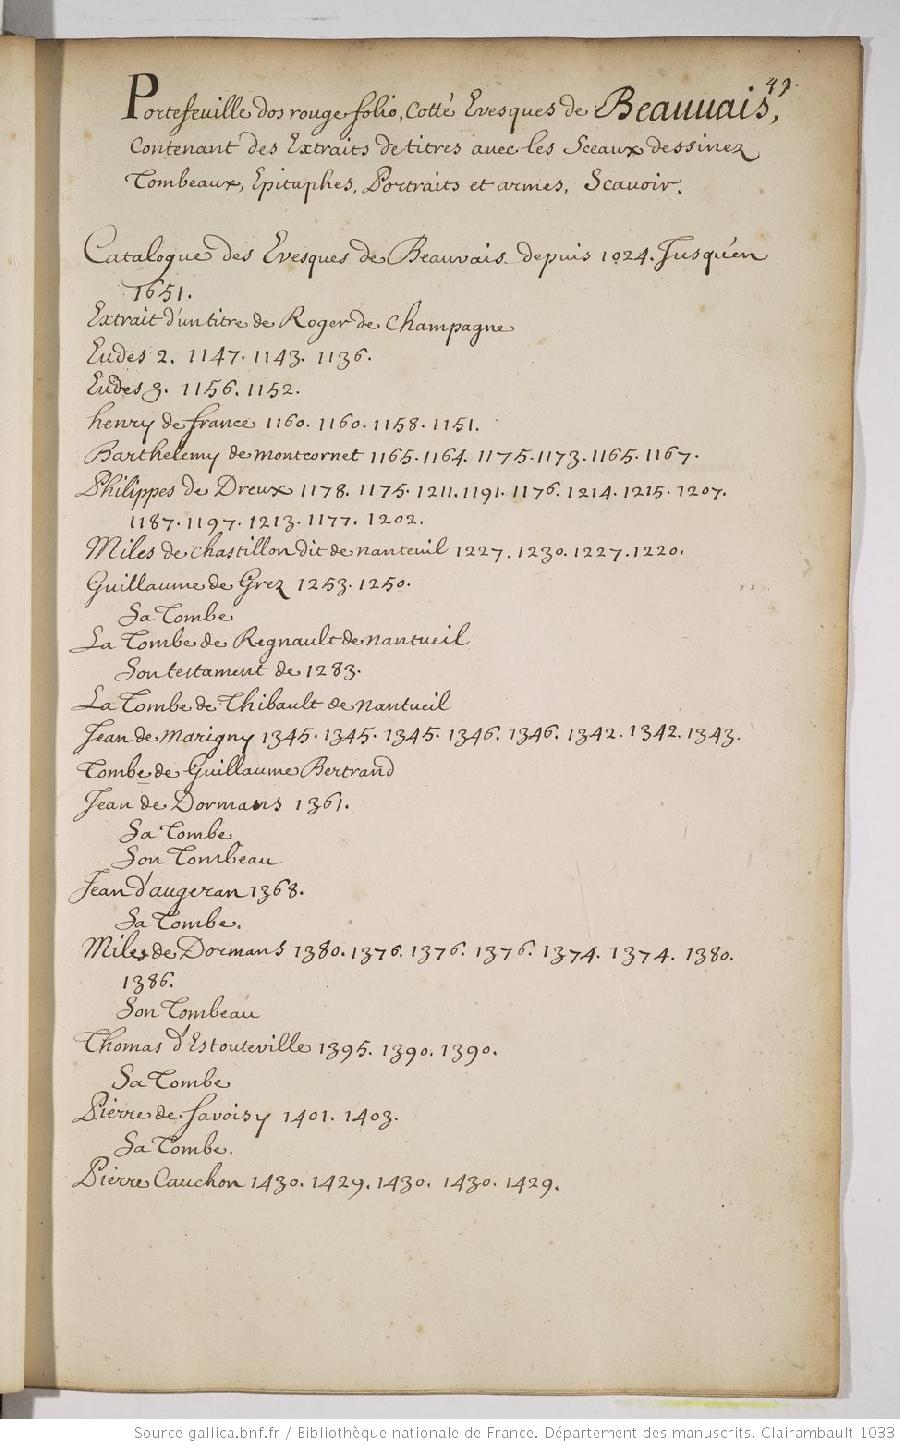 49.
Portefeuille dos rouge folio, Cotté Evesques de Beauuais,
Contenant des Extraits de titres auec les Sceaux dessinez
Tombeaux, Epitaphes, Portraits et armes, Scauoir.
Catalogue des Evesques de Beauvais depuis 1024. Jusqu'en
1651.
Extrait d'un titre de Roger de Champagne
Eudes 2. 1147. 1143. 1136.
Eudes 3. 1156. 1152.
henry de france 1160. 1160. 1158. 1151.
Barthelemy de montcornet 1165. 1164. 1175. 1173. 1165. 1167.
Philippes de Dreux 1178. 1175. 1211. 1191. 1176. 1214. 1215. 1207.
1187. 1197. 1213. 1177. 1202.
Miles de chastillon dit de nanteuil 1227. 1230. 1227. 1220.
Guillaume de Grez 1253. 1250.
Sa Tombe
La Tombe de Regnault de nantueil
Son testament de 1283.
La Tombe de Thibault de nantueil
Jean de Marigny 1345. 1345. 1345. 1346. 1346. 1342. 1342. 1343.
Tombe de Guillaume Bertrand
Jean de Dormans 1361.
Sa Tombe
Son Tombeau
Jean d'augeran 1368.
Sa Tombe.
Miles de Dormans 1380. 1376. 1376. 1376. 1374. 1374. 1380.
1386.
Son Tombeau
Thomas d'Estouteville 1395. 1390. 1390.
Sa Tombe
Pierre de Savoisy 1401. 1403.
Sa Tombe.
Pierre Cauchon 1430. 1429. 1430. 1430. 1429.
Source gallica.bnf.fr / Bibliothèque nationale de France. Département des manuscrits. Clairambault 1033